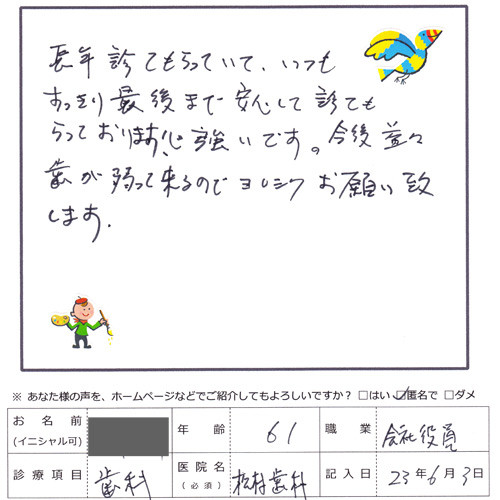 長年診てもらっていて、いつも
すっきり最後まで安心して診ても
らっております心強いです。今後益々
歯が弱って来るのでヨロシクお願い致
します.
※ あなた様の声を、ホームページなどでご紹介してもよろしいですか? □はい ☑匿名で □ダメ
お名前 (イニシャル可) 年齢 61 職業 会社役員
診療項目 歯科 医院名 (必須) 松村歯科 記入日 23年6月3日